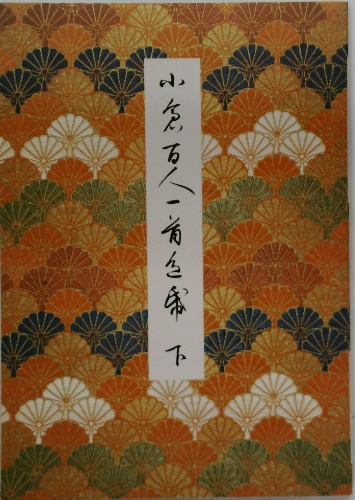 小倉百人一首色帋 下